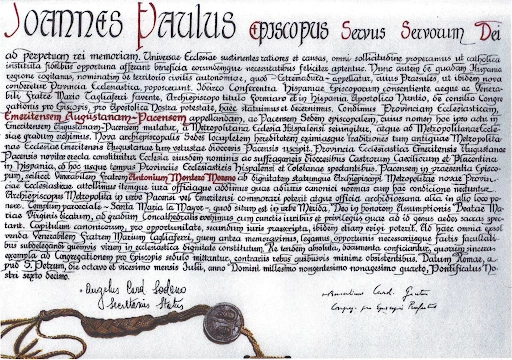 Joannes Paulus Episcopus Servus Servorum Dei
ad perpetuam rei memoriam. Universae Ecclesiae sustinentes rationes et causas, omni sollicitudine properamus ut catholica
instituta fidelibus opportuna afferant beneficia eorundemque necessitatibus feliciter aptentur. Nunc autem de quadam Hispaniae
regione cogitamus, nominatim de territorio civilis autonomiae, quod appellatur, cuius Praesules, ut ibidem nova
conderetur Provincia Ecclesiastica, poposcerunt. Idcirco Conferentia Hispaniae Episcoporum consentiente aeque ac Venera-
bili Fratre Mario Tagliaferri favente, Archiepiscopo titulo Formiano et in Hispania Apostolico Nuntio, de consilio Congre-
gationis pro Episcopis, pro Apostolica Nostra potestate, haec statuimus et decernimus. Condimus Provinciam Ecclesiasticam,
Emeritensem Augustanam-Pacensem appellandam, ac Pacensem Sedem episcopalem, cuius nomen hoc ipso actu in
Emeritensem Augustanam-Pacensem mutatur, a Metropolitana Ecclesia Hispalensi seiungitur, atque ad Metropolitanae Eccle-
siae gradum evehimus. Nova archiepiscopalis Sedes
nae Ecclesiae Emeritensis Augustanae tum vetustae dioecesis Pacensis. Provincia Ecclesiastica Emeritensis Augustana
Pacensis noviter erecta constituitur Ecclesia eiusdem nominis ac suffraganeis dioecesibus Castrorum Caeciliorum et Placentina
in Hispania, ad hoc usque tempus Provinciis Ecclesiasticis Hispalensi et Toletanae spectantibus. Pacensem in praesentia Episco-
pum, scilicet Venerabilem Fratrem Antonium Montero Moreno ad dignitatem statumque Archiepiscopi Metropolitae novae Provin-
ciae Ecclesiasticae attollimus itemque iura officiaque addimus quae ad iuris canonici normas cum hac condicione nectuntur.
Archiepiscopus Metropolita in urbe Pacensi vel Emeritensi commorari poterit atque officia archidioecesana alia in alio loco po-
nere. Templum paroeciale Sancta Maria la Mayor quod situm est in urbe Merida, Deo in honorem Assumptionis Beatae Ma-
riae Virginis dicatum, ad gradum Concathedralis evehimus cum omnibus iuribus et privilegiis quae ad id genus aedes sacras spec-
tant. Capitulum canonicorum, pro opportunitate, secundum iuris praescripta, ibidem etiam erigi poterit. Ad haec omnia exsol-
venda Venerabilem Fratrem Marium Tagliaferri, quem antea memoravimus, legamus, opportunis necessariisque factis facultati-
bus subdelegandi quemvis virum in ecclesiastica dignitate constitutum. Re tandem absoluta, documenta conficiantur, quorum sincera
exempla ad Congregationem pro Episcopis sedulo mittantur, contrariis rebus quibusvis minime obsistentibus. Datum Romae, a-
pud S. Petrum, die octavo et vicesimo mensis Iulii, anno Domini millesimo nongentesimo nonagesimo quarto, Pontificatus No-
stri sexto decimo.
Angelus Card. Sodano
Secretarius Status
Bernardinus Card. Gantin
Congreg. pro Episcopis Praefectus